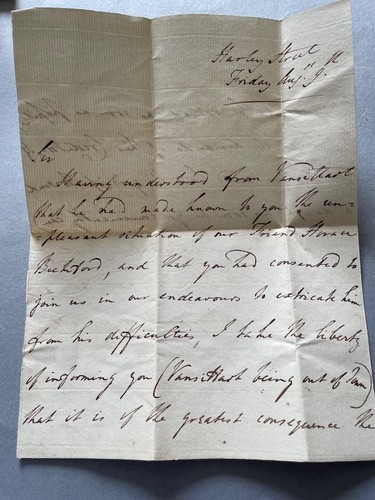 Harley Street
Friday Augt
Sir
Having understood from Vansittart
that he had made known to you the un=
pleasant situation of our Friend Horace
Beckford, and that you had consented to
join us in our endeavours to extricate him
from his difficulties, I take the liberty
of informing you (Vansittart being out of Town)
that it is of the greatest consequence the